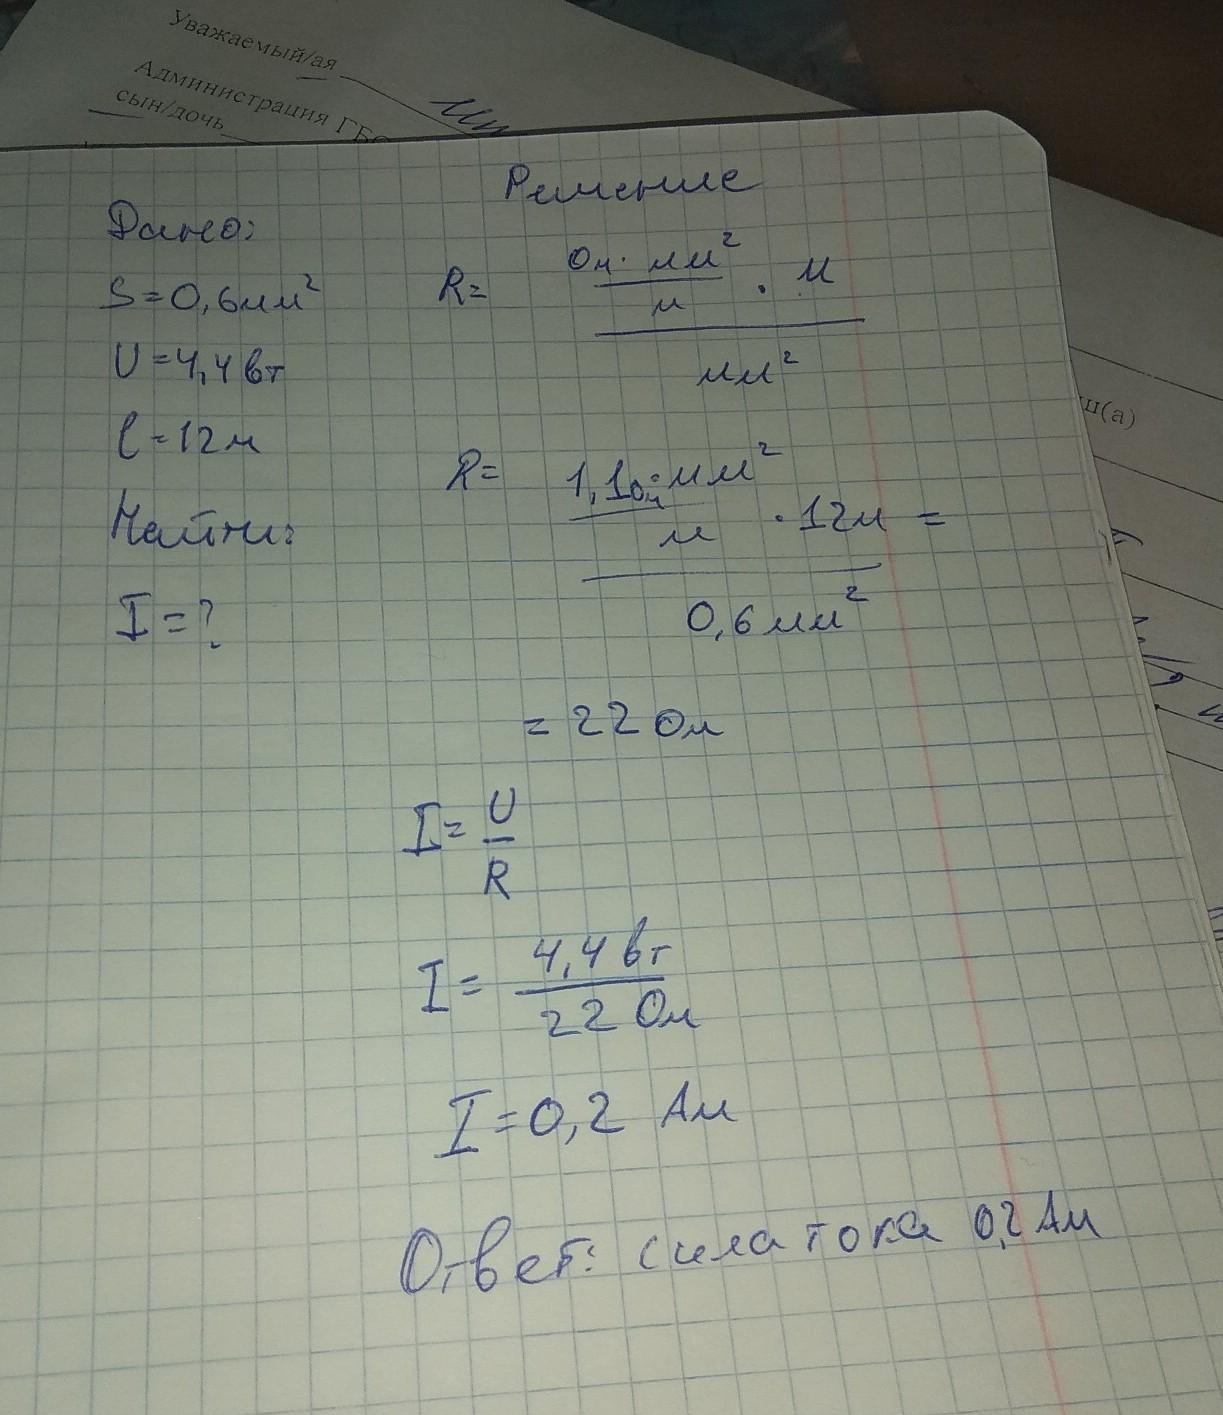 Уважаемый/ая
Администрация ГБО
сын/дочь
Решение
Дано:
S=0,6мм²
U=4,4вт
l=12м
Найти:
I=?
R= Ом·мм²/м · м / мм²
R= 1,1Ом·мм²/м · 12м / 0,6мм² =
= 22 Ом
I= U/R
I= 4,4вт/22 Ом
I=0,2 Ам
Ответ: сила тока 0,2 Ам
ш(а)